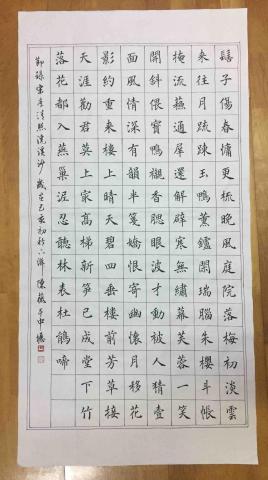 髻子傷春慵更梳晚風庭院落梅初淡雲
來往月疏疏玉鴨薰爐閒瑞腦朱櫻斗帳
掩流蘇通犀還解辟寒無繡幕芙蓉一笑
開斜偎寶鴨襯香腮眼波才動被人猜壹
面風情深有韻半箋嬌恨寄幽懷月移花
影約重來樓上晴天碧四垂樓前芳草接
天涯勸君莫上最高梯新筍已成堂下竹
落花都入燕巢泥忍聽林表杜鵑啼
錄宋李清照浣溪沙 歲在己亥初秋 陳薇